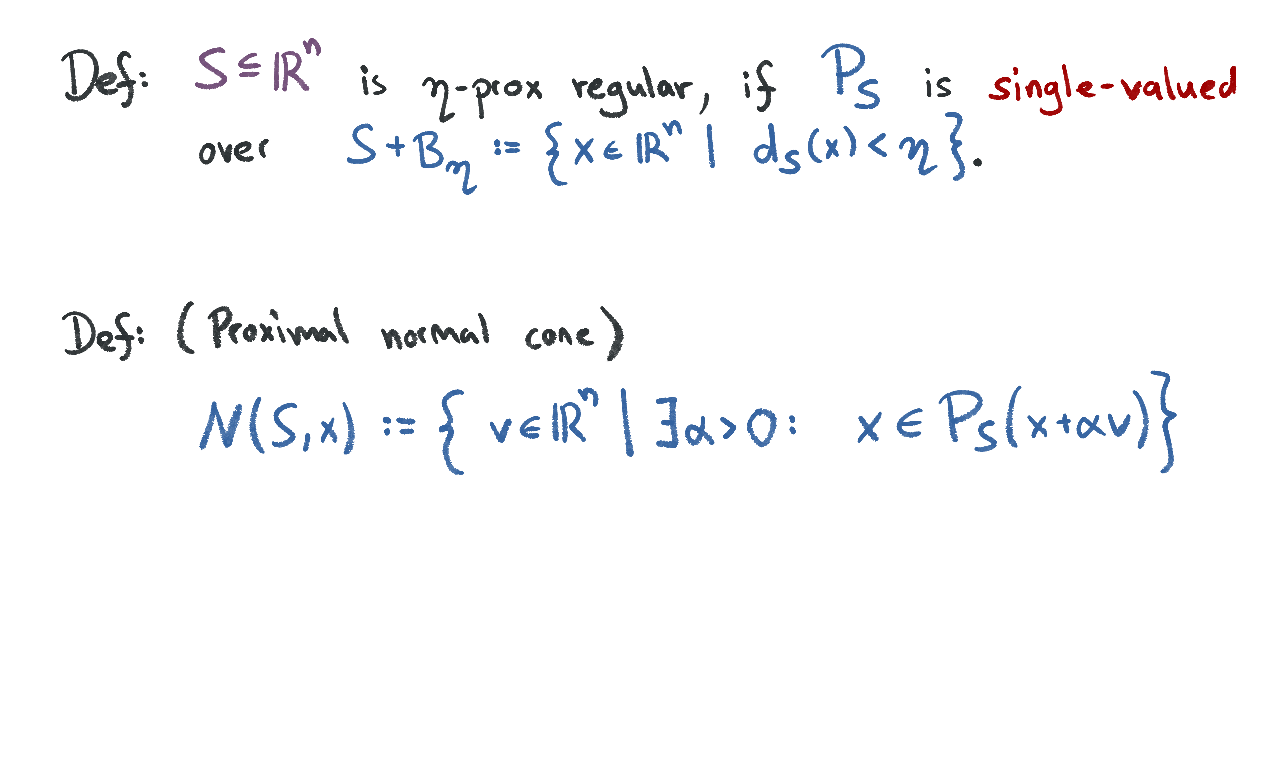 Def: S ⊆ ℝⁿ is η-prox regular, if P_S is single-valued
over S + B_η := { x ∈ ℝⁿ | d_S(x) < η }.
Def: (Proximal normal cone)
N(S,x) := { v ∈ ℝⁿ | ∃α > 0: x ∈ P_S(x+αv) }